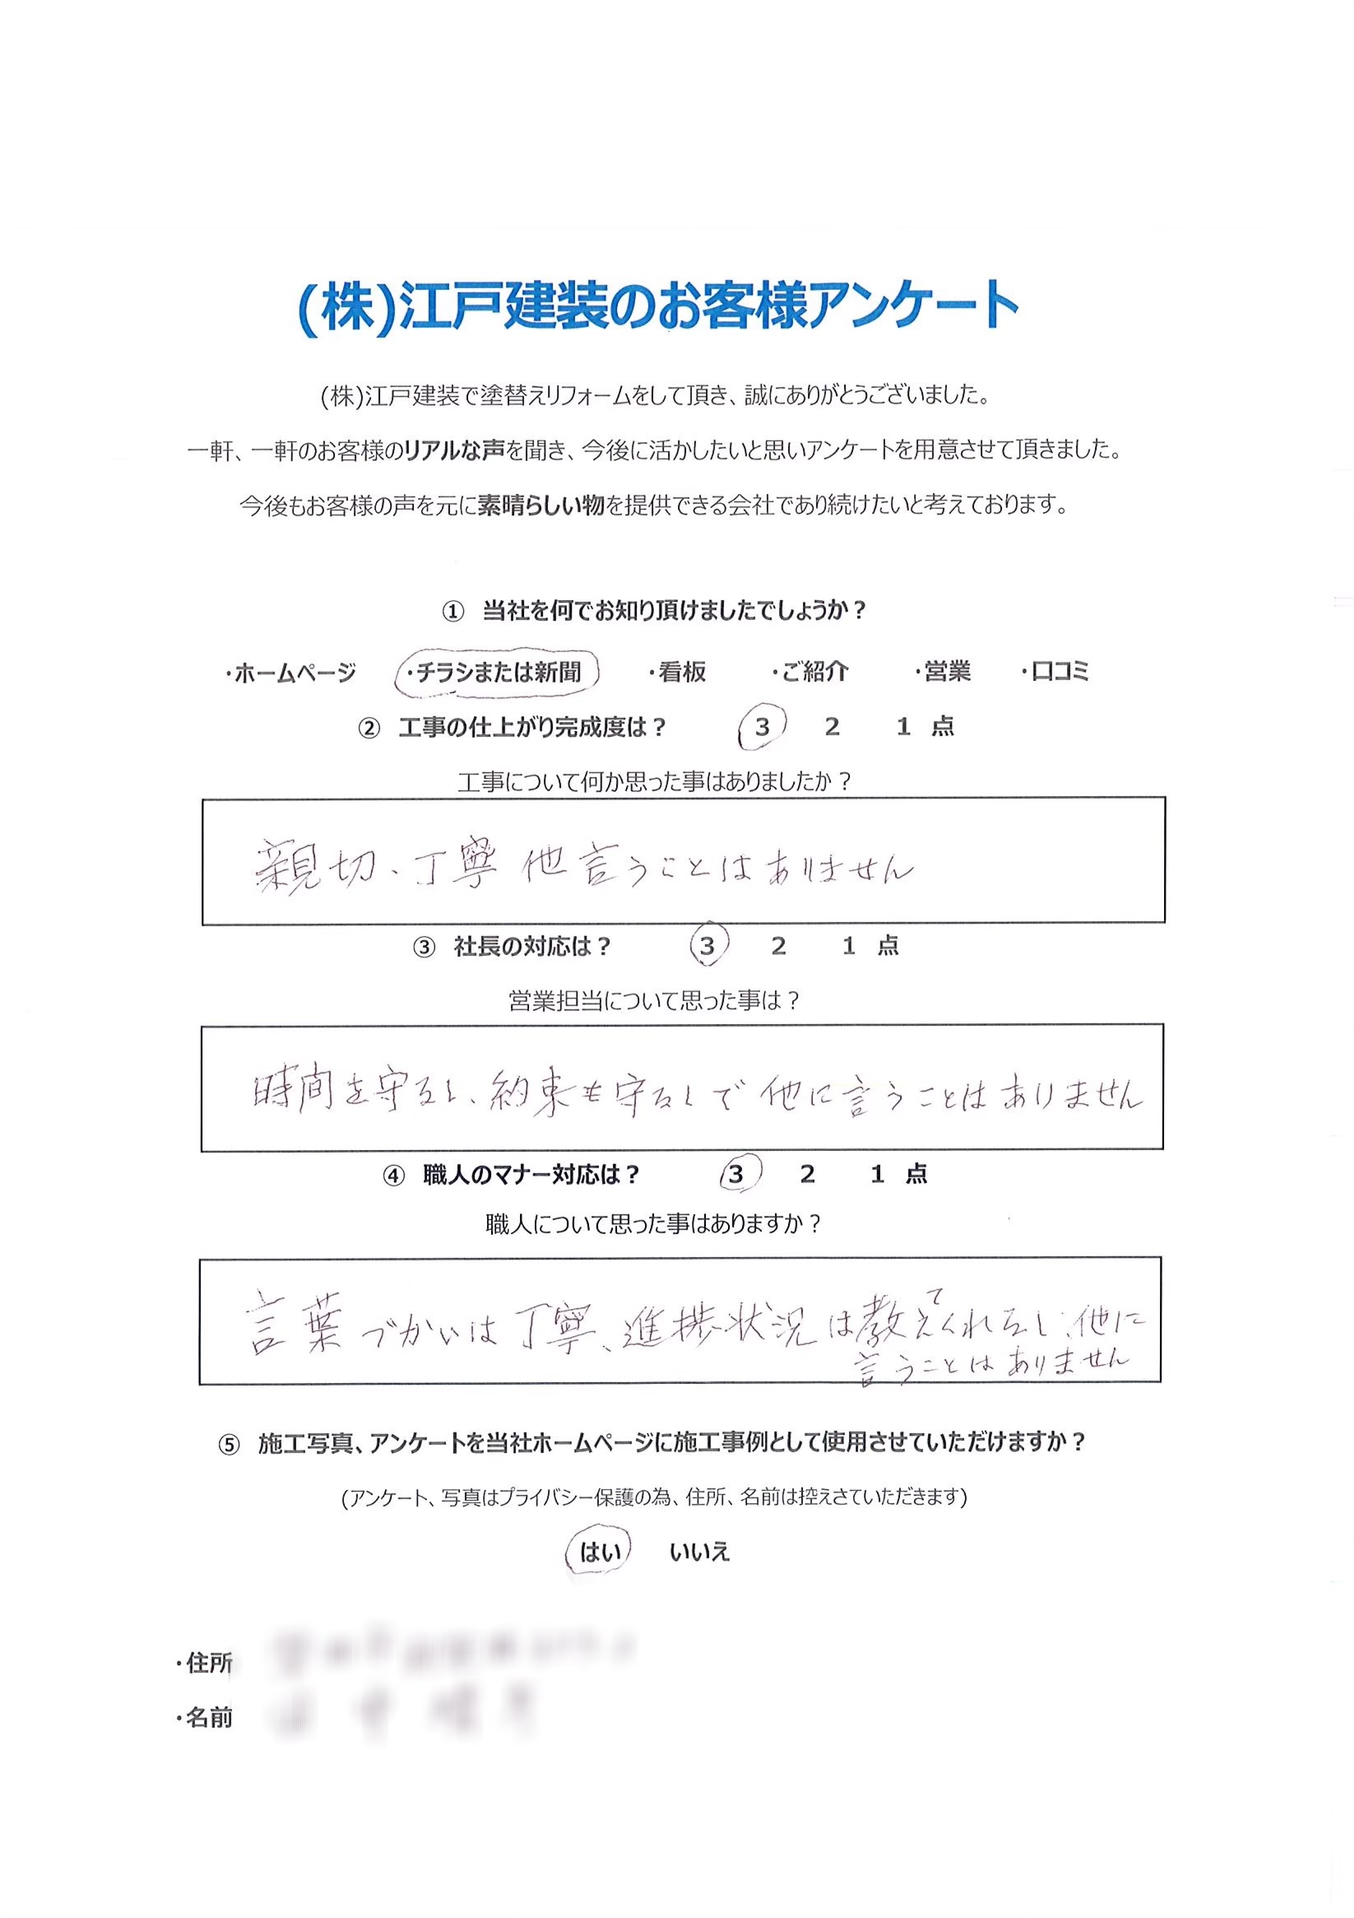 (株)江戸建装のお客様アンケート
(株)江戸建装で塗替えリフォームをして頂き、誠にありがとうございました。
一軒、一軒のお客様のリアルな声を聞き、今後に活かしたいと思いアンケートを用意させて頂きました。
今後もお客様の声を元に素晴らしい物を提供できる会社であり続けたいと考えております。
① 当社を何でお知り頂けましたでしょうか？
・ホームページ ・チラシまたは新聞 ・看板 ・ご紹介 ・営業 ・口コミ
② 工事の仕上がり完成度は？ 3 2 1 点
工事について何か思った事はありましたか？
親切、丁寧 他言うことはありません
③ 社長の対応は？ 3 2 1 点
営業担当について思った事は？
時間を守るし、約束も守るしで 他に言うことはありません
④ 職人のマナー対応は？ 3 2 1 点
職人について思った事はありますか？
言葉づかいは丁寧、進捗状況は教えてくれるし、他に
言うことはありません
⑤ 施工写真、アンケートを当社ホームページに施工事例として使用させていただけますか？
(アンケート、写真はプライバシー保護の為、住所、名前は控えさていただきます)
はい いいえ
・住所
・名前